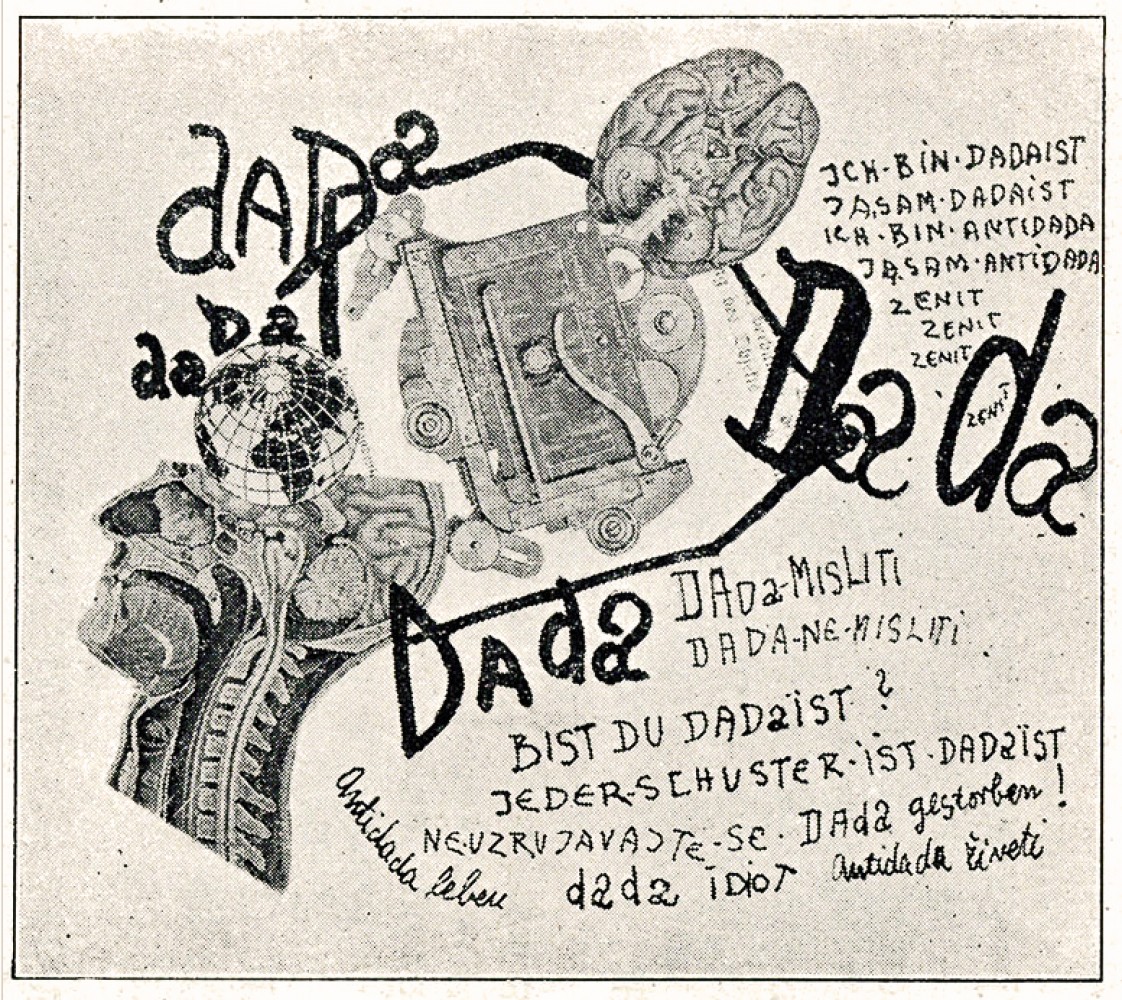 dADa
daDa
JCH·BiN·DADAIST
JA·SAM·DADAiST
ICH·BIN·ANTIDADA
JA·SAM·ANTiDADA
ZENIT
ZENIT
ZENIT
Dada
ZENIT
Dada
DADa-MISLITI
DADA-NE-MISLITi
BIST DU DADaïST ?
JEDER·SCHUSTER·iST·DADaïST
NE·UZRUJAVAJTE-SE· DAda gestorben!
Antidada leben
dada iDiOT
Antidada živeti